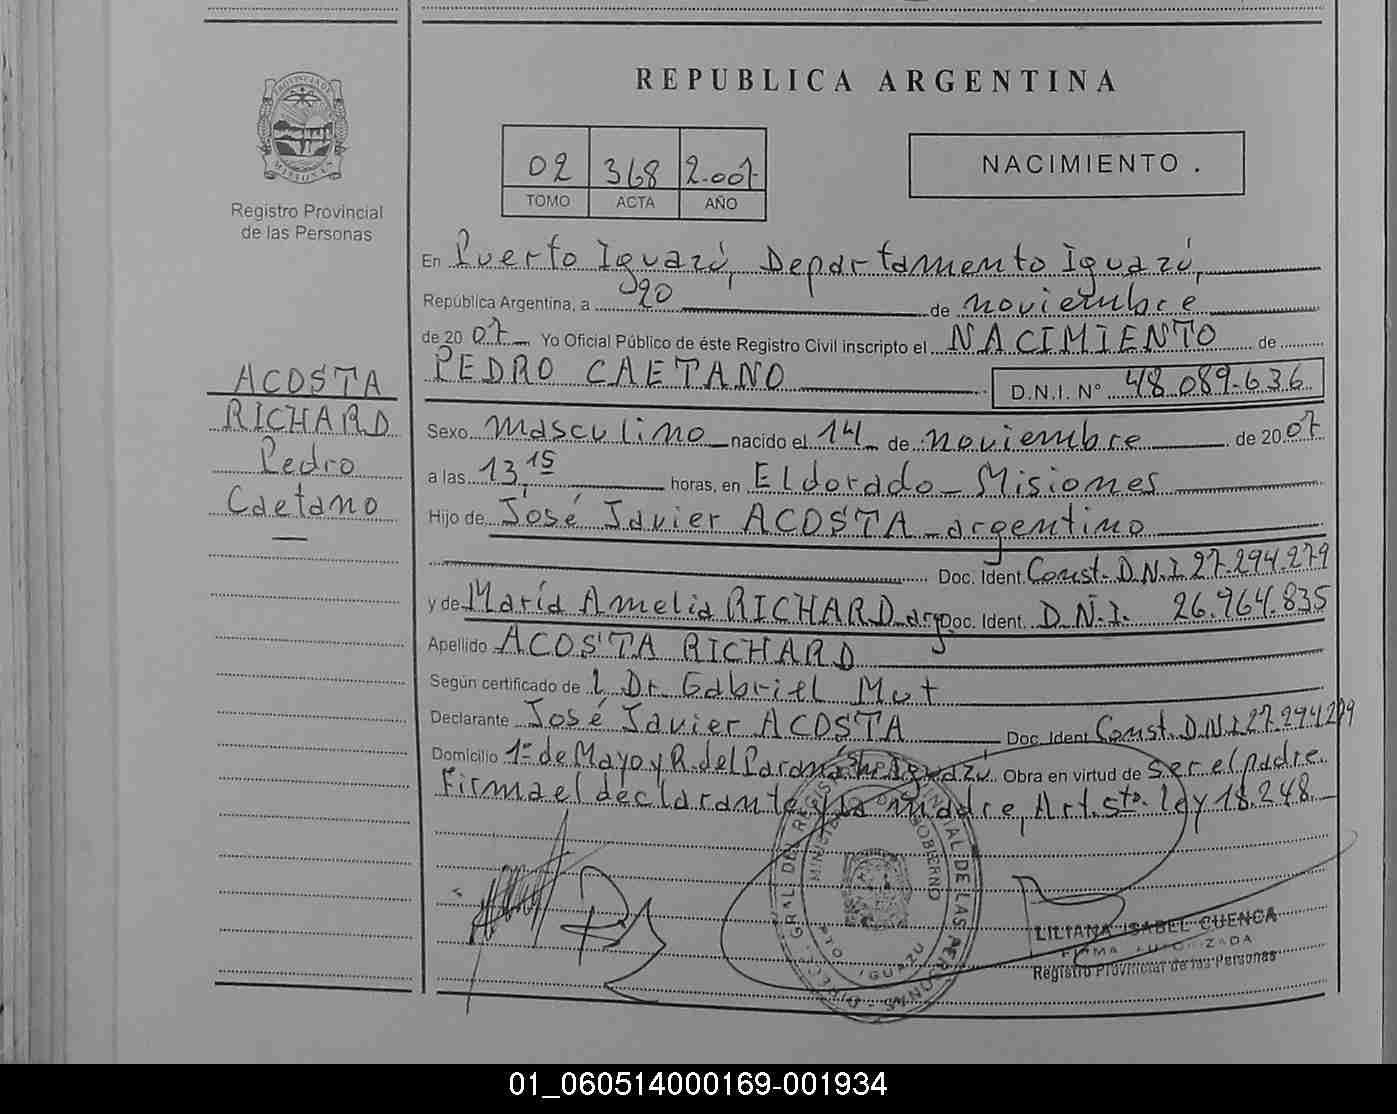 REPUBLICA ARGENTINA
PROVINCIA DE MISIONES
Registro Provincial
de las Personas
02 368 2.007
TOMO ACTA AÑO
NACIMIENTO .
En Puerto Iguazú, Departamento Iguazú,
República Argentina, a 20 de noviembre
de 20 07 Yo Oficial Público de éste Registro Civil inscripto el NACIMIENTO de
PEDRO CAETANO D.N.I. Nº 48.089.636
Sexo masculino nacido el 14 de noviembre de 20 07
a las 13,15 horas, en Eldorado - Misiones
Hijo de José Javier ACOSTA - argentino
Doc. Ident. Const. D.N.I 27.294.279
y de María Amelia RICHARD - arg Doc. Ident. D.N.I. 26.964.835
Apellido ACOSTA RICHARD
Según certificado de Dr. Gabriel Mut
Declarante José Javier ACOSTA Doc. Ident Const. D.N.I 27.294.279
Domicilio 1º de Mayo y R. del Paraná Iguazú Obra en virtud de ser el padre.
Firma el declarante y la madre, Art. 5to. ley 18.248.
ACOSTA
RICHARD
Pedro
Caetano
GRAL DEL REGISTRO PROVINCIAL DE LAS PERSONAS
MINISTERIO DE GOBIERNO
PTO IGUAZU
LILIANA ISABEL CUENCA
FIRMA AUTORIZADA
Registro Provincial de las Personas
01_060514000169-001934